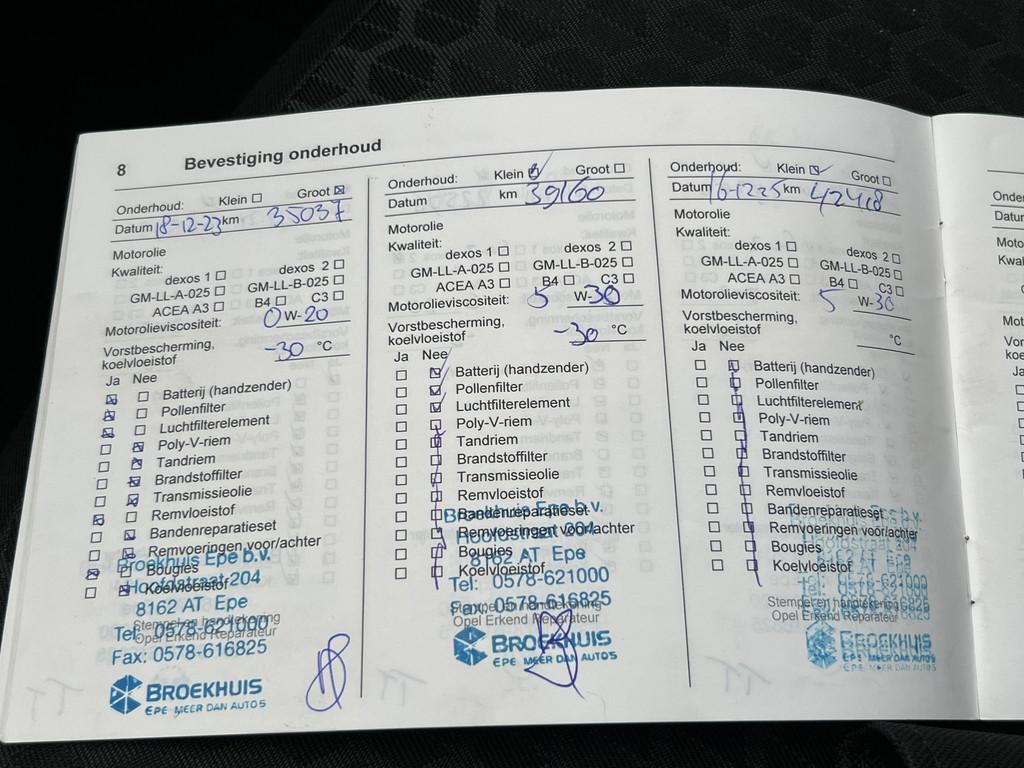 8
Bevestiging onderhoud
Onderhoud: Klein ☐ Groot ☒
Datum 18-12-23 km 35037
Motorolie
Kwaliteit:
dexos 1 ☐ dexos 2 ☐
GM-LL-A-025 ☐ GM-LL-B-025 ☐
ACEA A3 ☐ B4 ☐ C3 ☐
Motorolieviscositeit: 0 W-20
Vorstbescherming,
koelvloeistof -30 °C
Ja Nee
Batterij (handzender)
Pollenfilter
Luchtfilterelement
Poly-V-riem
Tandriem
Brandstoffilter
Transmissieolie
Remvloeistof
Bandenreparatieset
Remvoeringen voor/achter
Bougies
Koelvloeistof
Broekhuis Epe b.v.
Hoofdstraat 204
8162 AT Epe
Stempel en handtekening
Opel Erkend Reparateur
Tel: 0578-621000
Fax: 0578-616825
BROEKHUIS
EPE MEER DAN AUTO'S
Onderhoud: Klein ☑ Groot ☐
Datum km 39160
Motorolie
Kwaliteit:
dexos 1 ☐ dexos 2 ☐
GM-LL-A-025 ☐ GM-LL-B-025 ☐
ACEA A3 ☐ B4 ☐ C3 ☐
Motorolieviscositeit: 5 W-30
Vorstbescherming,
koelvloeistof -30 °C
Ja Nee
Batterij (handzender)
Pollenfilter
Luchtfilterelement
Poly-V-riem
Tandriem
Brandstoffilter
Transmissieolie
Remvloeistof
Bandenreparatieset
Remvoeringen voor/achter
Bougies
Koelvloeistof
Broekhuis Epe b.v.
Hoofdstraat 204
8162 AT Epe
Tel: 0578-621000
Fax: 0578-616825
Stempel en handtekening
Opel Erkend Reparateur
BROEKHUIS
EPE MEER DAN AUTO'S
Onderhoud: Klein ☒ Groot ☐
Datum 16-12-25 km 42418
Motorolie
Kwaliteit:
dexos 1 ☐ dexos 2 ☐
GM-LL-A-025 ☐ GM-LL-B-025 ☐
ACEA A3 ☐ B4 ☐ C3 ☐
Motorolieviscositeit: 5 W-30
Vorstbescherming,
koelvloeistof °C
Ja Nee
Batterij (handzender)
Pollenfilter
Luchtfilterelement
Poly-V-riem
Tandriem
Brandstoffilter
Transmissieolie
Remvloeistof
Bandenreparatieset
Remvoeringen voor/achter
Bougies
Koelvloeistof
Stempel en handtekening
Opel Erkend Reparateur
BROEKHUIS
EPE MEER DAN AUTO'S